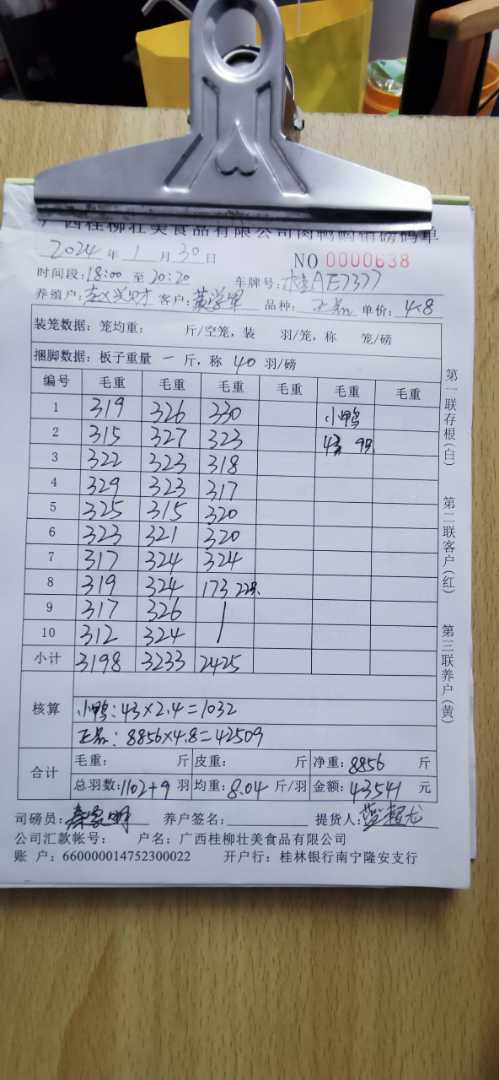 广西桂柳壮美食品有限公司肉鸭购销磅码单
2024年1月30日 NO 0000638
时间段:18:00 至 20:20 车牌号:桂AE7377
养殖户: 客户:黄学军 品种: 正品 单价: 4.8
装笼数据: 笼均重: 斤/空笼, 装 羽/笼, 称 笼/磅
捆脚数据: 板子重量 一 斤, 称 40 羽/磅
编号 毛重 毛重 毛重 毛重 毛重 毛重
1 319 326 330 小鸭
2 315 327 323 43斤 9羽
3 322 323 318
4 329 323 317
5 325 315 320
6 323 321 320
7 317 324 324
8 319 324 173 22羽
9 317 326
10 312 324
小计 3198 3233 2425
核算 小鸭: 43×2.4=1032
正品: 8856×4.8=42509
合计 毛重: 斤 皮重: 斤 净重: 8856 斤
总羽数: 1102+9 羽 均重: 8.04 斤/羽 金额: 43541 元
司磅员: 养户签名: 提货人:
公司汇款帐号: 户名: 广西桂柳壮美食品有限公司
账 户: 660000014752300022 开户行: 桂林银行南宁隆安支行
第一联存根(白)
第二联客户(红)
第三联养户(黄)